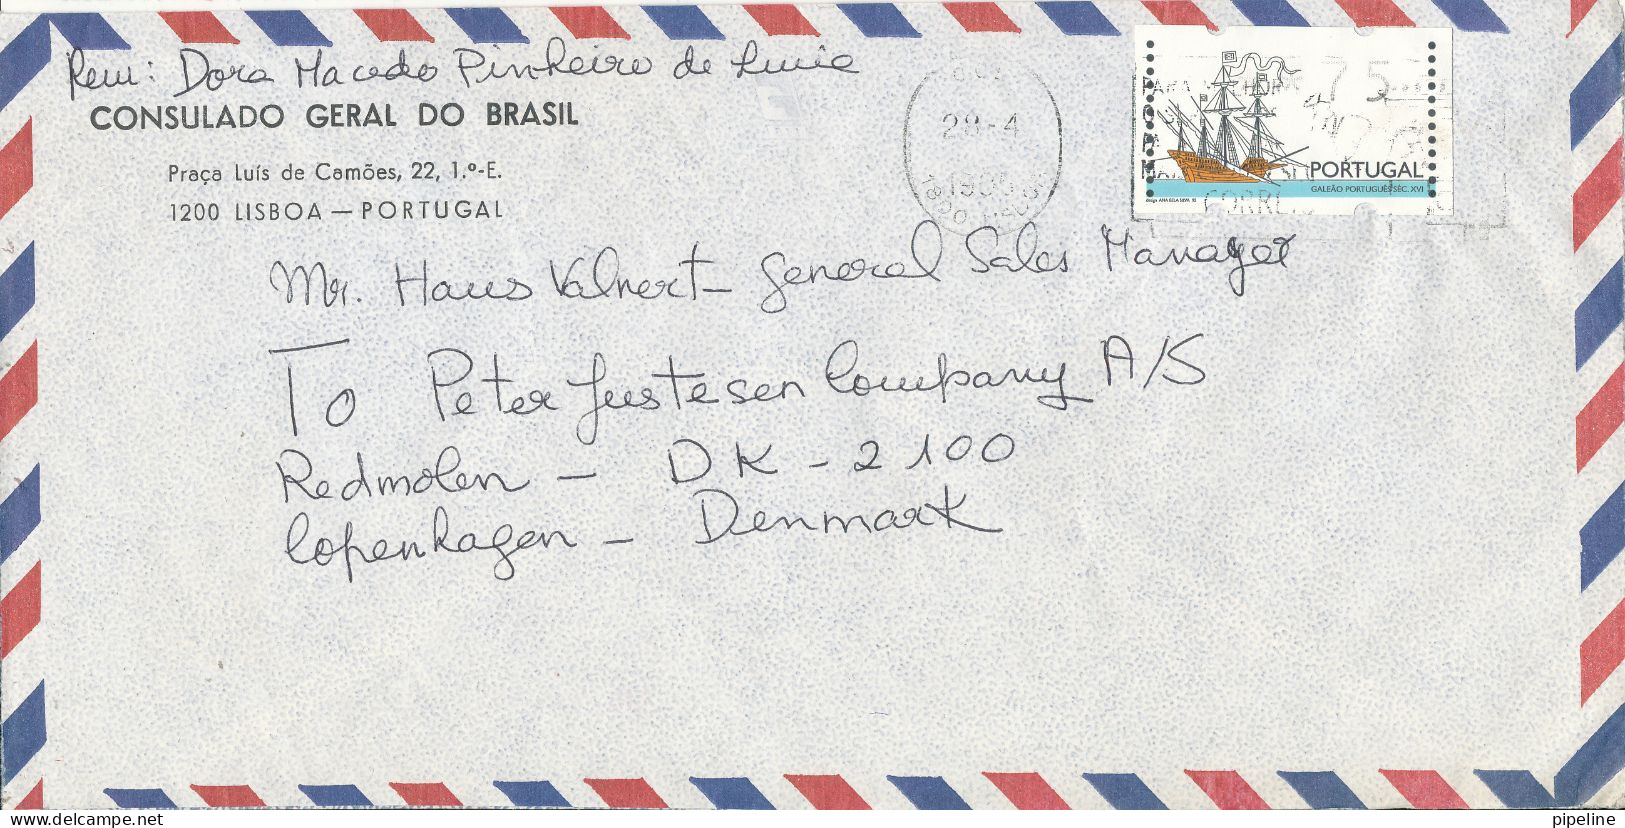 Rem: Dora Macedo Pinheiro de
CONSULADO GERAL DO BRASIL
Praça Luís de Camões, 22, 1.º-E.
1200 LISBOA — PORTUGAL
28-4
1800 LISBOA
75
PORTUGAL
GALEÃO PORTUGUÊS SÉC. XVI
design ANA BELA SILVA 95
CORREIO
Mr. Haus Valnert - General Sales Manager
To Peter Justesen Company A/S
Redmolen - DK - 2100
Copenhagen - Denmark
www.delcampe.net
pipeline